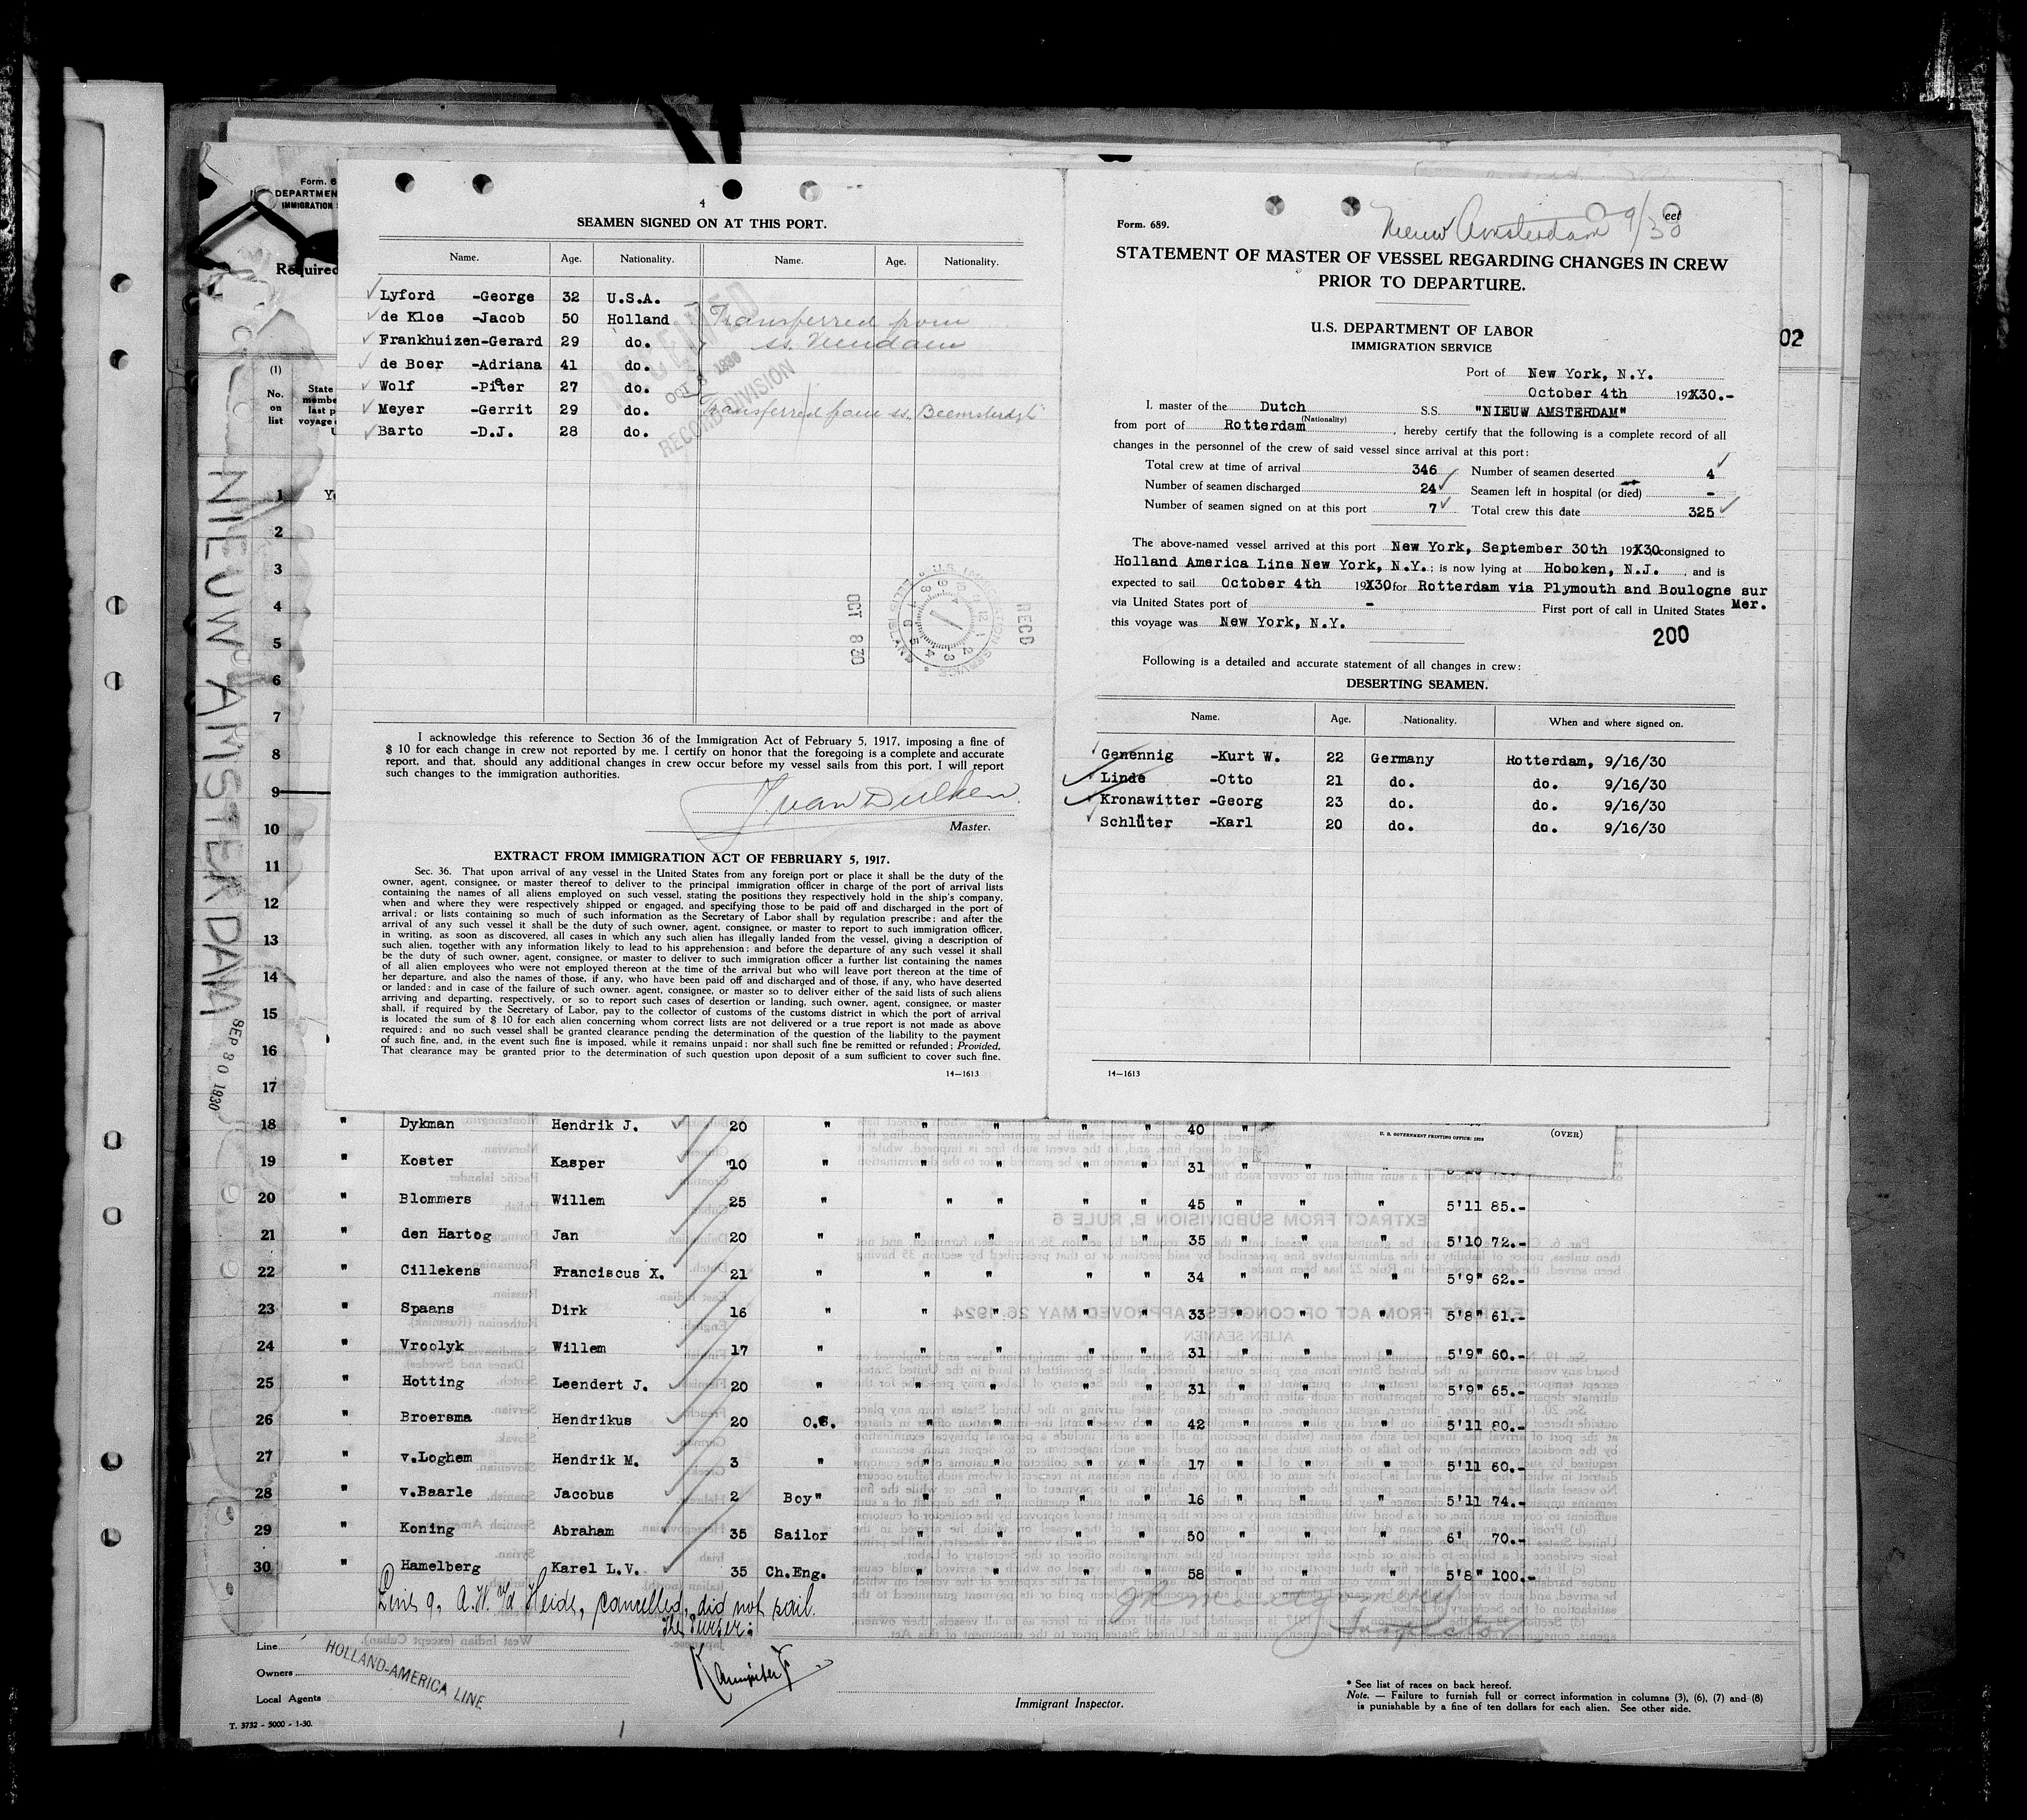 Form. 6
DEPARTMEN
IMMIGRATION
Required
(1)
No.
on
list
State
membe
last p
voyage
NIEUW AMSTERDAM
SEP 30 1930
4
SEAMEN SIGNED ON AT THIS PORT.
Name. Age. Nationality. Name. Age. Nationality.
Lyford -George 32 U.S.A.
de Kloe -Jacob 50 Holland Transferred from
Frankhuizen-Gerard 29 do. ss.
de Boer -Adriana 41 do.
Wolf -Pieter 27 do.
Meyer -Gerrit 29 do. Transferred from ss.
Barto -D.J. 28 do.
RECORD DIVISION
OCT 8 30
RECD
I acknowledge this reference to Section 36 of the Immigration Act of February 5, 1917, imposing a fine of
$ 10 for each change in crew not reported by me. I certify on honor that the foregoing is a complete and accurate
report, and that, should any additional changes in crew occur before my vessel sails from this port, I will report
such changes to the immigration authorities.
J. van Dulken.
Master.
EXTRACT FROM IMMIGRATION ACT OF FEBRUARY 5, 1917.
Sec. 36. That upon arrival of any vessel in the United States from any foreign port or place it shall be the duty of the
owner, agent, consignee, or master thereof to deliver to the principal immigration officer in charge of the port of arrival lists
containing the names of all aliens employed on such vessel, stating the positions they respectively hold in the ship's company,
when and where they were respectively shipped or engaged, and specifying those to be paid off and discharged in the port of
arrival; or lists containing so much of such information as the Secretary of Labor shall by regulation prescribe; and after the
arrival of any such vessel it shall be the duty of such owner, agent, consignee, or master to report to such immigration officer,
in writing, as soon as discovered, all cases in which any such alien has illegally landed from the vessel, giving a description of
such alien, together with any information likely to lead to his apprehension; and before the departure of any such vessel it shall
be the duty of such owner, agent, consignee, or master to deliver to such immigration officer a further list containing the names
of all alien employees who were not employed thereon at the time of the arrival but who will leave port thereon at the time of
her departure, and also the names of those, if any, who have been paid off and discharged and of those, if any, who have deserted
or landed; and in case of the failure of such owner. agent, consignee, or master so to deliver either of the said lists of such aliens
arriving and departing, respectively, or so to report such cases of desertion or landing, such owner, agent, consignee, or master
shall, if required by the Secretary of Labor, pay to the collector of customs of the customs district in which the port of arrival
is located the sum of $ 10 for each alien concerning whom correct lists are not delivered or a true report is not made as above
required; and no such vessel shall be granted clearance pending the determination of the question of the liability to the payment
of such fine, and, in the event such fine is imposed, while it remains unpaid; nor shall such fine be remitted or refunded; Provided,
That clearance may be granted prior to the determination of such question upon deposit of a sum sufficient to cover such fine.
14—1613
Form. 689.
Nieuw Amsterdam 9/30
STATEMENT OF MASTER OF VESSEL REGARDING CHANGES IN CREW
PRIOR TO DEPARTURE.
U.S. DEPARTMENT OF LABOR
IMMIGRATION SERVICE
02
Port of New York, N.Y.
October 4th 192X30.-
I, master of the Dutch S.S. "NIEUW AMSTERDAM"
(Nationality)
from port of Rotterdam, hereby certify that the following is a complete record of all
changes in the personnel of the crew of said vessel since arrival at this port:
Total crew at time of arrival 346 Number of seamen deserted 4
Number of seamen discharged 24 Seamen left in hospital (or died) -
Number of seamen signed on at this port 7 Total crew this date 325
The above-named vessel arrived at this port New York, September 30th 192X30 consigned to
Holland America Line New York, N.Y.; is now lying at Hoboken, N.J., and is
expected to sail October 4th 192X30 for Rotterdam via Plymouth and Boulogne sur
via United States port of - First port of call in United States Mer.
this voyage was New York, N.Y.
200
Following is a detailed and accurate statement of all changes in crew:
DESERTING SEAMEN.
Name. Age. Nationality. When and where signed on.
Genennig -Kurt W. 22 Germany Rotterdam, 9/16/30
Linde -Otto 21 do. do. 9/16/30
Kronawitter -Georg 23 do. do. 9/16/30
Schlüter -Karl 20 do. do. 9/16/30
14—1613
U. S. GOVERNMENT PRINTING OFFICE
(OVER)
1
2
3
4
5
6
7
8
9
10
11
12
13
14
15
16
17
18 " Dykman Hendrik J. 20 " " " " " 40 "
19 " Koster Kasper 10 " " " " " 31 " " "
20 " Blommers Willem 25 " " " " " 45 " " " 5'11 85.-
21 " den Hartog Jan 20 " " " " " 35 " " " 5'10 72.-
22 " Cillekens Franciscus X. 21 " " " " " 34 " " " 5'9" 62.-
23 " Spaans Dirk 16 " " " " " 33 " " " 5'8" 61.-
24 " Vroolyk Willem 17 " " " " " 31 " " " 5'9" 60.-
25 " Hotting Leendert J. 20 " " " " " 31 " " " 5'9" 65.-
26 " Broersma Hendrikus 20 O.S. " " " " 42 " " " 5'11 80.-
27 " v.Loghem Hendrik M. 3 " " " " " 17 " " " 5'11 60.-
28 " v.Baarle Jacobus 2 Boy" " " " " 16 " " " 5'11 74.-
29 " Koning Abraham 35 Sailor " " " " 50 " " " 6' 70.-
30 " Hamelberg Karel L.V. 35 Ch.Eng. " " " " 58 " " " 5'8" 100.-
Line 9, A.W. v/d Heide, cancelled, did not sail.
The Purser:
Montgomery
Inspector
Line
Owners
HOLLAND-AMERICA LINE
Local Agents
Immigrant Inspector.
T. 3732 - 5000 - 1-30.
* See list of races on back hereof.
Note. — Failure to furnish full or correct information in columns (3), (6), (7) and (8)
is punishable by a fine of ten dollars for each alien. See other side.